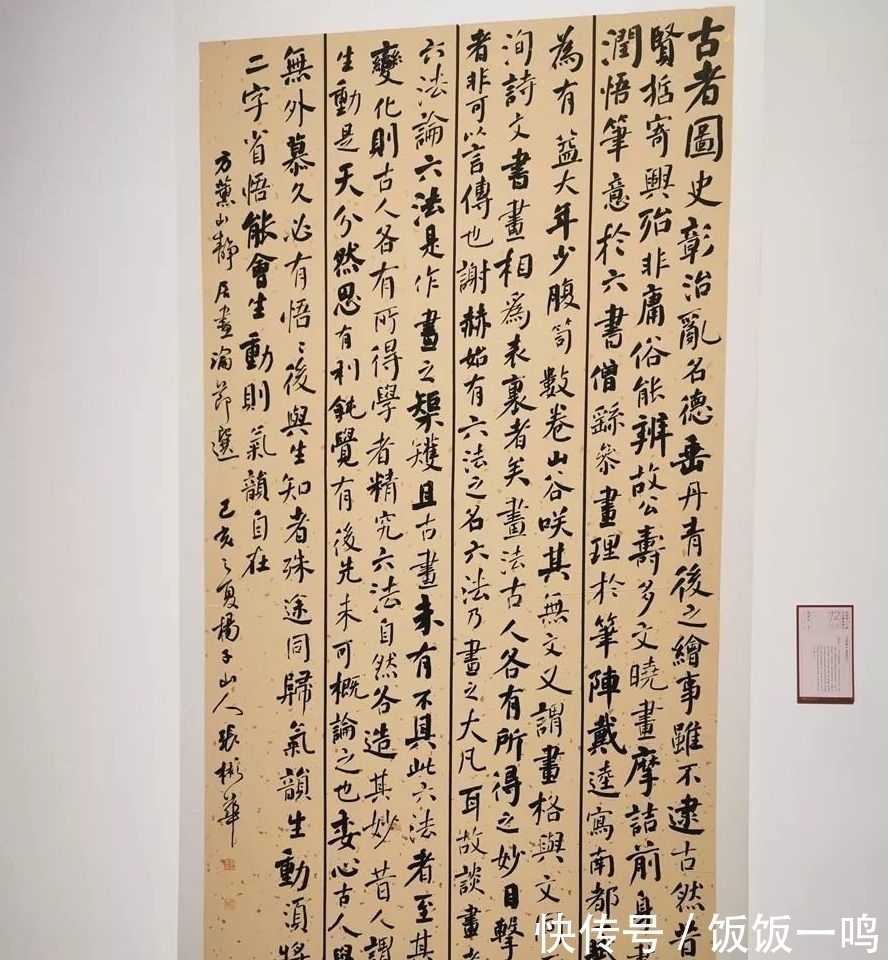 古者圖史彰治亂名德垂丹青後之繪事雖不逮古然昔
賢托寄興殆非庸俗能辨故公壽多文曉畫摩詰前身
潤悟筆意於六書僧繇參畫理於筆陣戴逵寫南都
為有益大年少腹笥數卷山谷咲其無文又謂畫格與文同
洵詩文書畫相為表裏者矣畫法古人各有所得之妙目擊
者非可以言傳也謝赫始有六法之名六法乃畫之大凡耳故談畫者
六法論六法是作畫之矩矱且古畫未有不具此六法者至其
變化則古人各有所得學者精究六法自然各造其妙昔人謂
生動是天分然思有利鈍覺有後先未可概論之也委心古人學
無外慕久必有悟〻後與生知者殊途同歸氣韻生動須將
二字省悟能會生動則氣韻自在
方薰山靜居畫論節選 己亥之夏橘子山人張彬華
快传号 / 饭饭一鸣